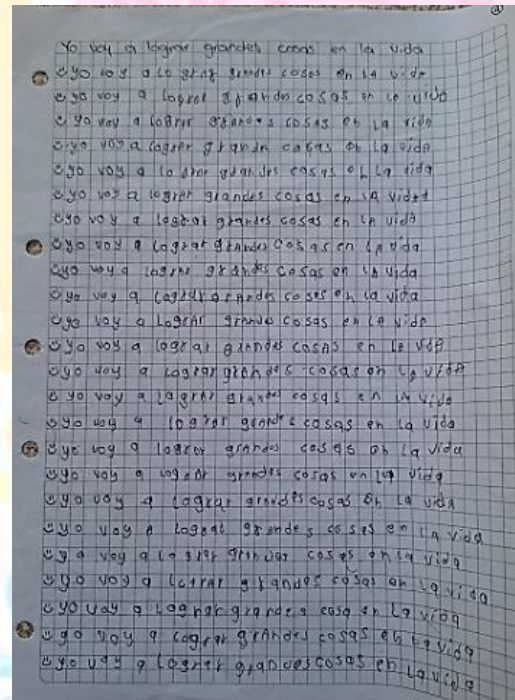 Yo voy a lograr grandes cosas en la vida
yo voy a lo grar grandes cosas en la vida
yo voy a lograr grandes cosas en la vida
yo voy a lograr grandes cosas en la vida
yo voy a lograr grandes cosas en la vida
yo voy a lo grar grandes cosas en la vida
yo voy a lograr grandes cosas en la vida
yo voy a lograr grandes cosas en la vida
yo voy a lograr grandes cosas en la vida
yo voy a lograr grandes cosas en la vida
yo voy a lograr grandes cosas en la vida
yo voy a lograr grandes cosas en la vida
yo voy a lograr grandes cosas en la vida
yo voy a lograr grandes cosas en la vida
yo voy a lograr grandes cosas en la vida
yo voy a lograr grandes cosas en la vida
yo voy a lograr grandes cosas en la vida
yo voy a lograr grandes cosas en la vida
yo voy a lograr grandes cosas en la vida
yo voy a lograr grandes cosas en la vida
yo voy a lograr grandes cosas en la vida
yo voy a grandes cosas en la vida
yo voy a lograr grandes cosa en la vida
yo voy a lograr grandes cosas en la vida
yo voy a lograr grandes cosas en la vida